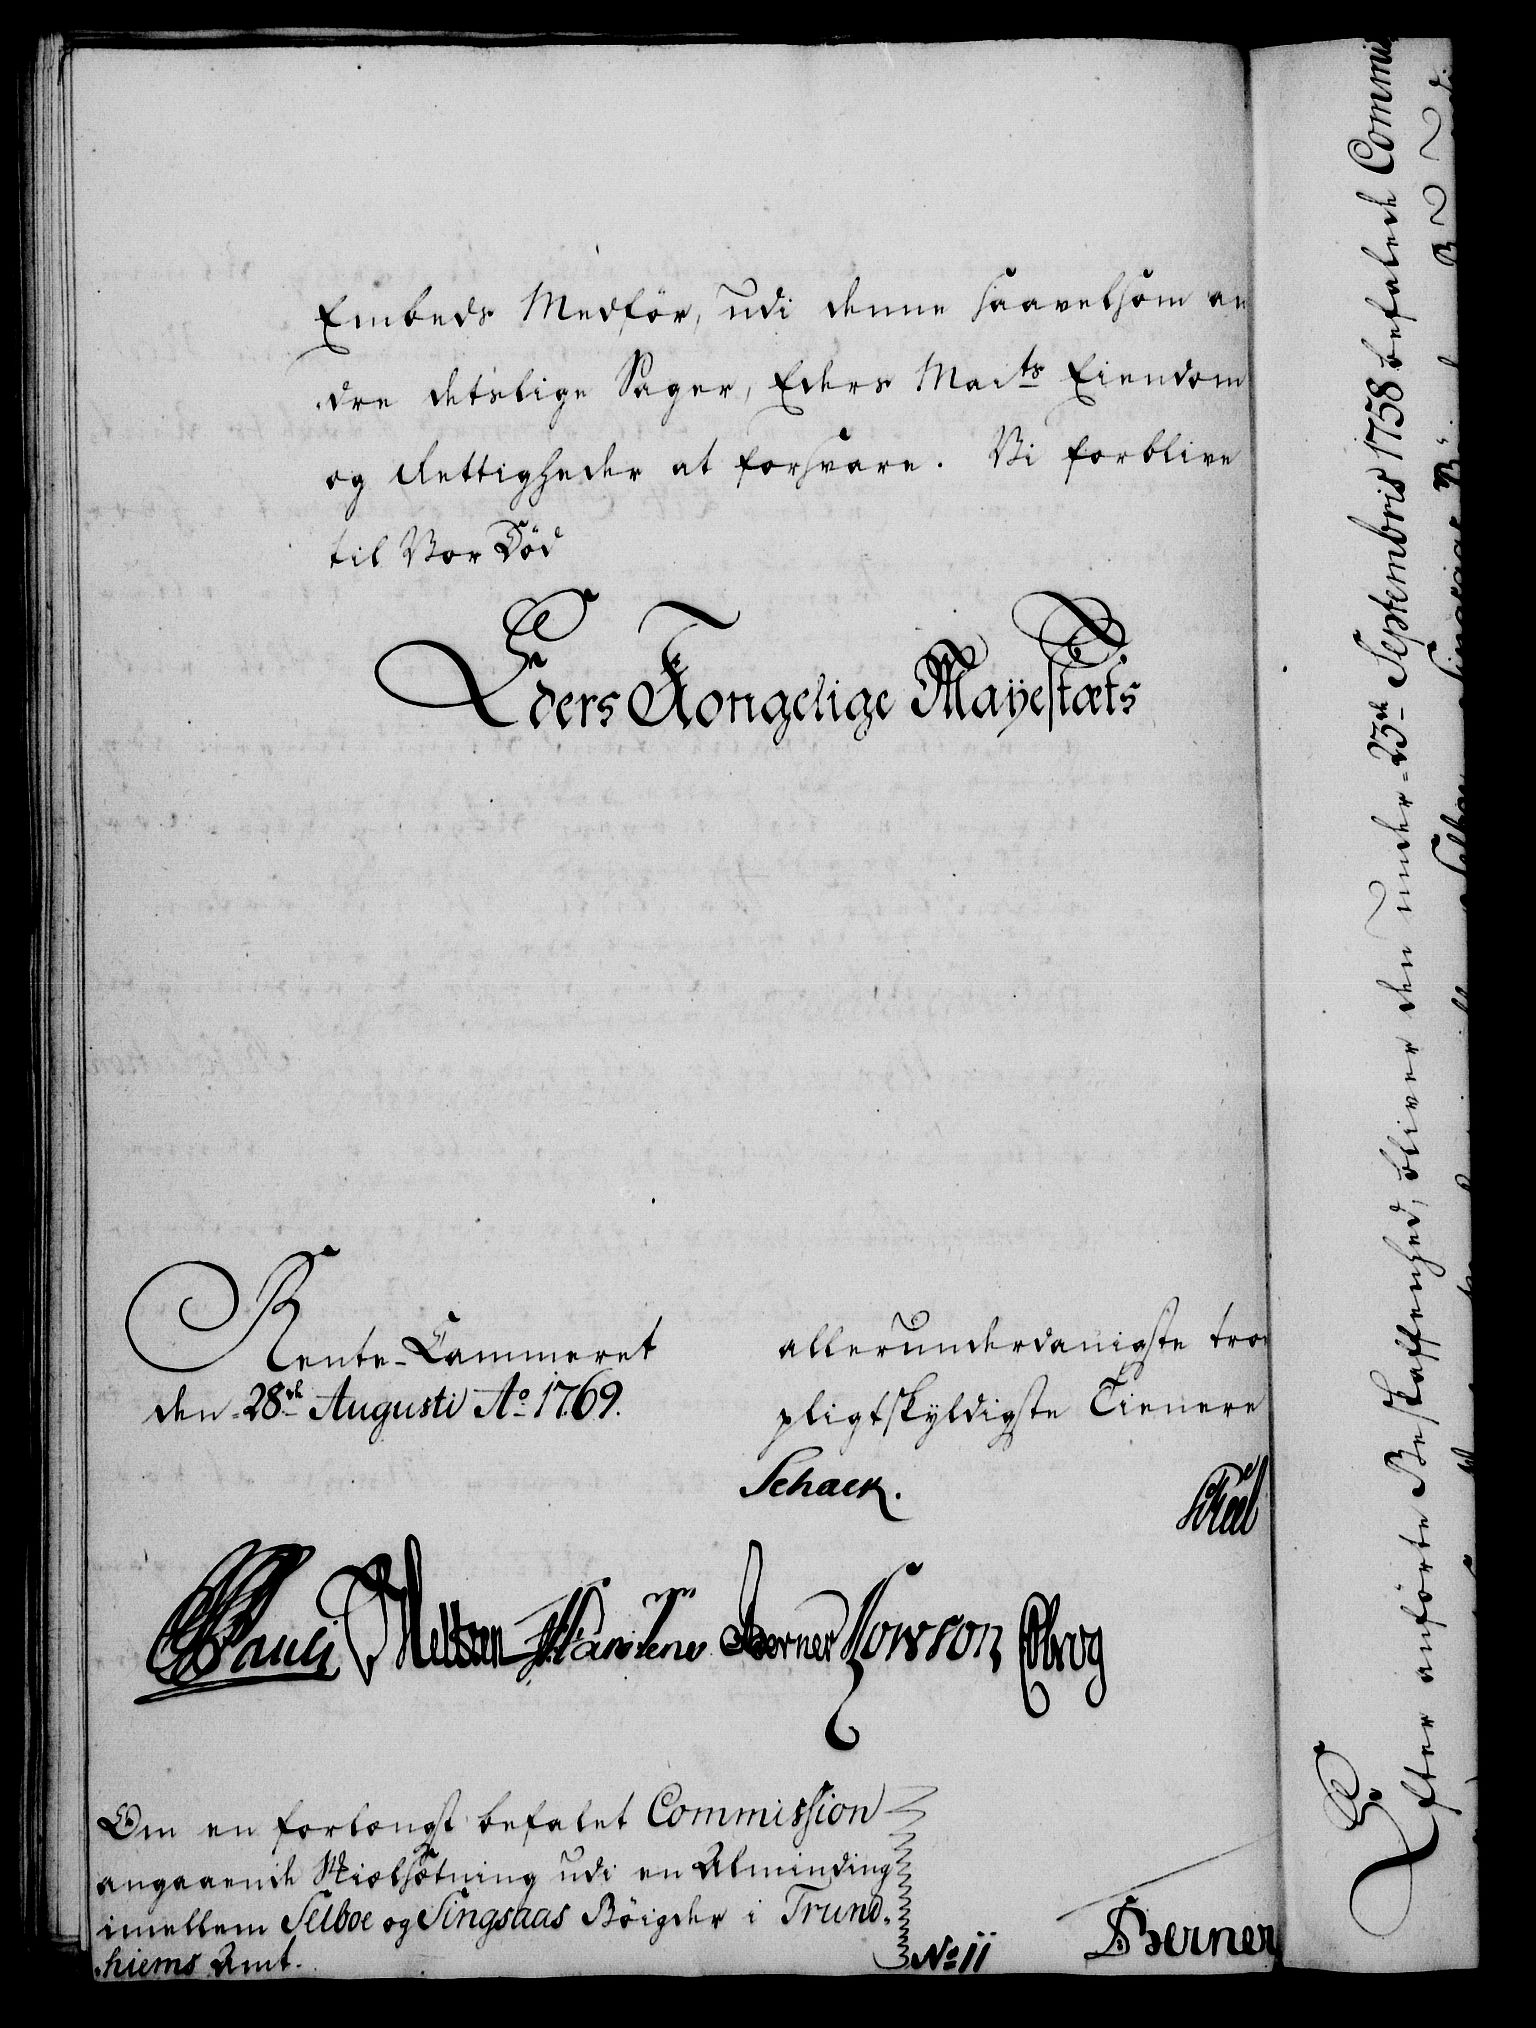 Embeds Medför, udi denne saavelsom an
dre deslige Sager, Eders Maits Eiendom
og Rettigheder at forsvare. Vi forblive
til Vor Död
Eders Kongelige Mayestæts
Rente-Cammeret
den 28de Augusti Ao 1769.
allerunderdanigste troe
pligtskyldigste Tienere
Schack.
Pauli Meltzen Karstens Berner Kowson
Om en forlængst befalet Commission
angaaende Skiælsætning udi en Alminding
imellem Selboe og Singsaas Böigder i Trund-
hiems Amt.
No 11
Berner
Efter anförte Beskaffenhed, bliver den under 23de Septembris 1758 befalede Commis